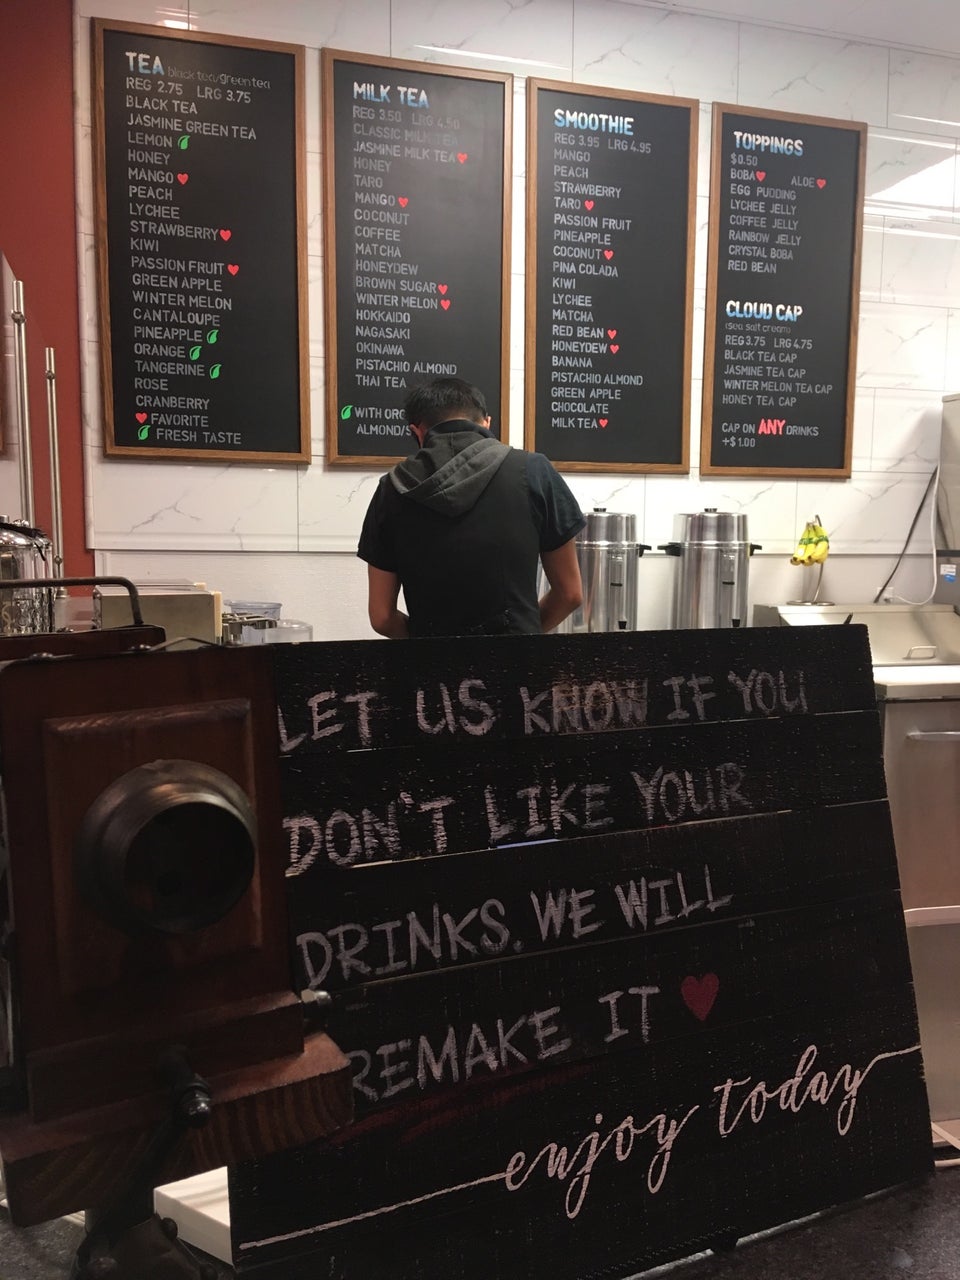 TEA black tea/green tea
REG 2.75 LRG 3.75
BLACK TEA
JASMINE GREEN TEA
LEMON
HONEY
MANGO
PEACH
LYCHEE
STRAWBERRY
KIWI
PASSION FRUIT
GREEN APPLE
WINTER MELON
CANTALOUPE
PINEAPPLE
ORANGE
TANGERINE
ROSE
CRANBERRY
FAVORITE
FRESH TASTE
MILK TEA
REG 3.50 LRG 4.50
CLASSIC MILK TEA
JASMINE MILK TEA
HONEY
TARO
MANGO
COCONUT
COFFEE
MATCHA
HONEYDEW
BROWN SUGAR
WINTER MELON
HOKKAIDO
NAGASAKI
OKINAWA
PISTACHIO ALMOND
THAI TEA
WITH ORG
ALMOND/S
SMOOTHIE
REG 3.95 LRG 4.95
MANGO
PEACH
STRAWBERRY
TARO
PASSION FRUIT
PINEAPPLE
COCONUT
PINA COLADA
KIWI
LYCHEE
MATCHA
RED BEAN
HONEYDEW
BANANA
PISTACHIO ALMOND
GREEN APPLE
CHOCOLATE
MILK TEA
TOPPINGS
$0.50
BOBA ALOE
EGG PUDDING
LYCHEE JELLY
COFFEE JELLY
RAINBOW JELLY
CRYSTAL BOBA
RED BEAN
CLOUD CAP
(sea salt cream)
REG 3.75 LRG 4.75
BLACK TEA CAP
JASMINE TEA CAP
WINTER MELON TEA CAP
HONEY TEA CAP
CAP ON ANY DRINKS
+$1.00
LET US KNOW IF YOU
DON'T LIKE YOUR
DRINKS. WE WILL
REMAKE IT
enjoy today